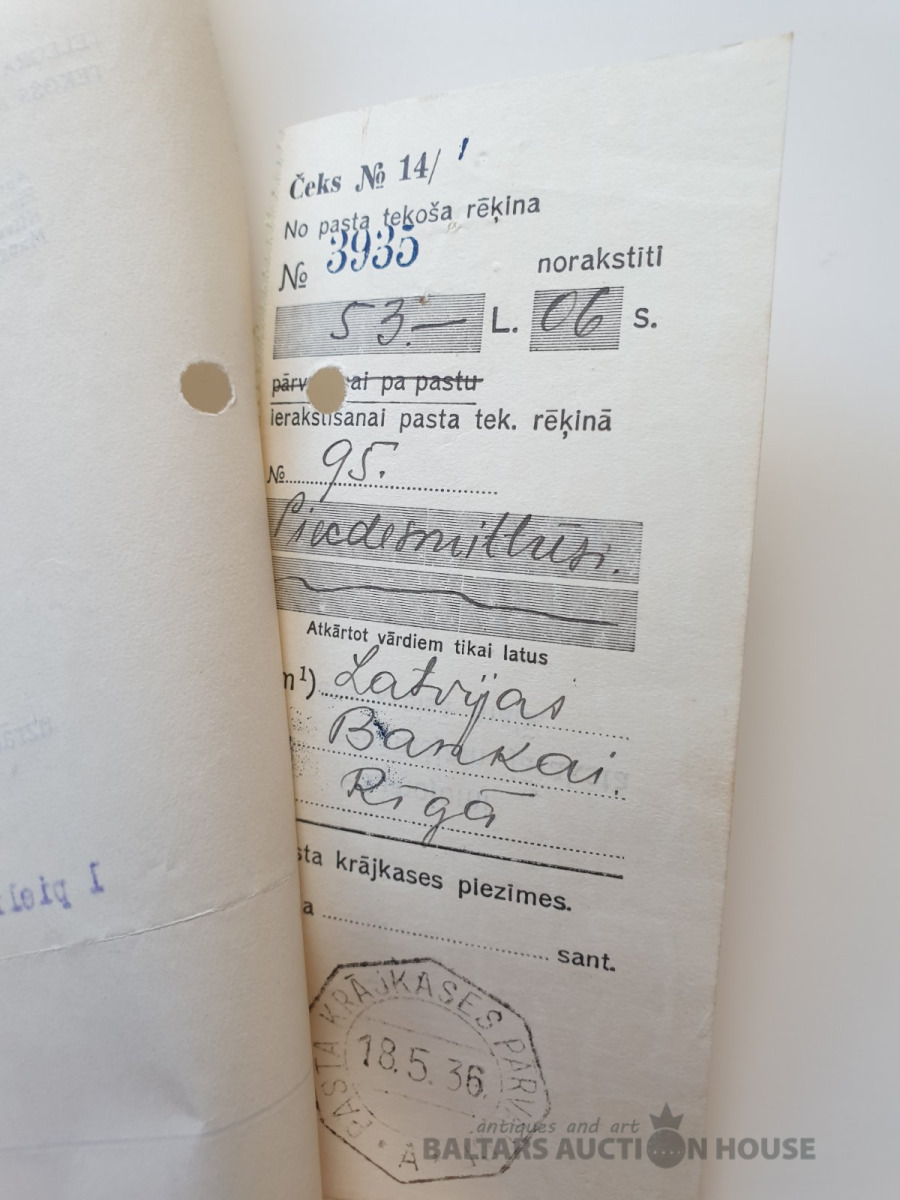 Čeks № 14/1
No pasta tekoša rēķina
№ 3935 norakstiti
53.— L. 06 s.
pārv ai pa pastu
ierakstīšanai pasta tek. rēķinā
№ 95.
Piecdesmittrīsi.
Atkārtot vārdiem tikai latus
m¹) Latvijas
Bankai.
Rīgā
sta krājkases piezīmes.
a sant.
PASTA KRĀJKASES PĀRV
18.5.36
1 piel
antiques and art
BALTARS AUCTION HOUSE